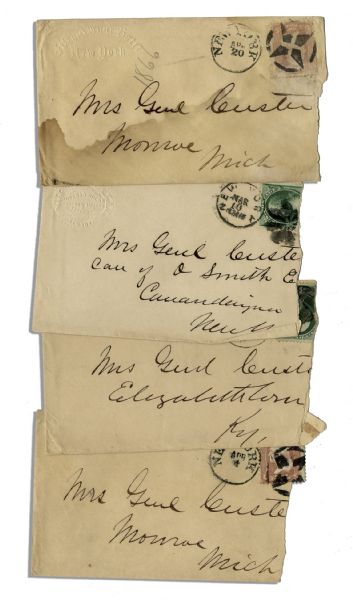 New York
NEW YORK
APR
20
Mrs Genl Custer
Monroe
Mich
NEW YORK
MAR
10
Mrs Genl Custe
care of D Smith E
Canandaigua
New Y
Mrs Genl Custe
Elizabethtown
Ky,
NEW YORK
APR
4
Mrs Genl Custe
Monroe
Mich